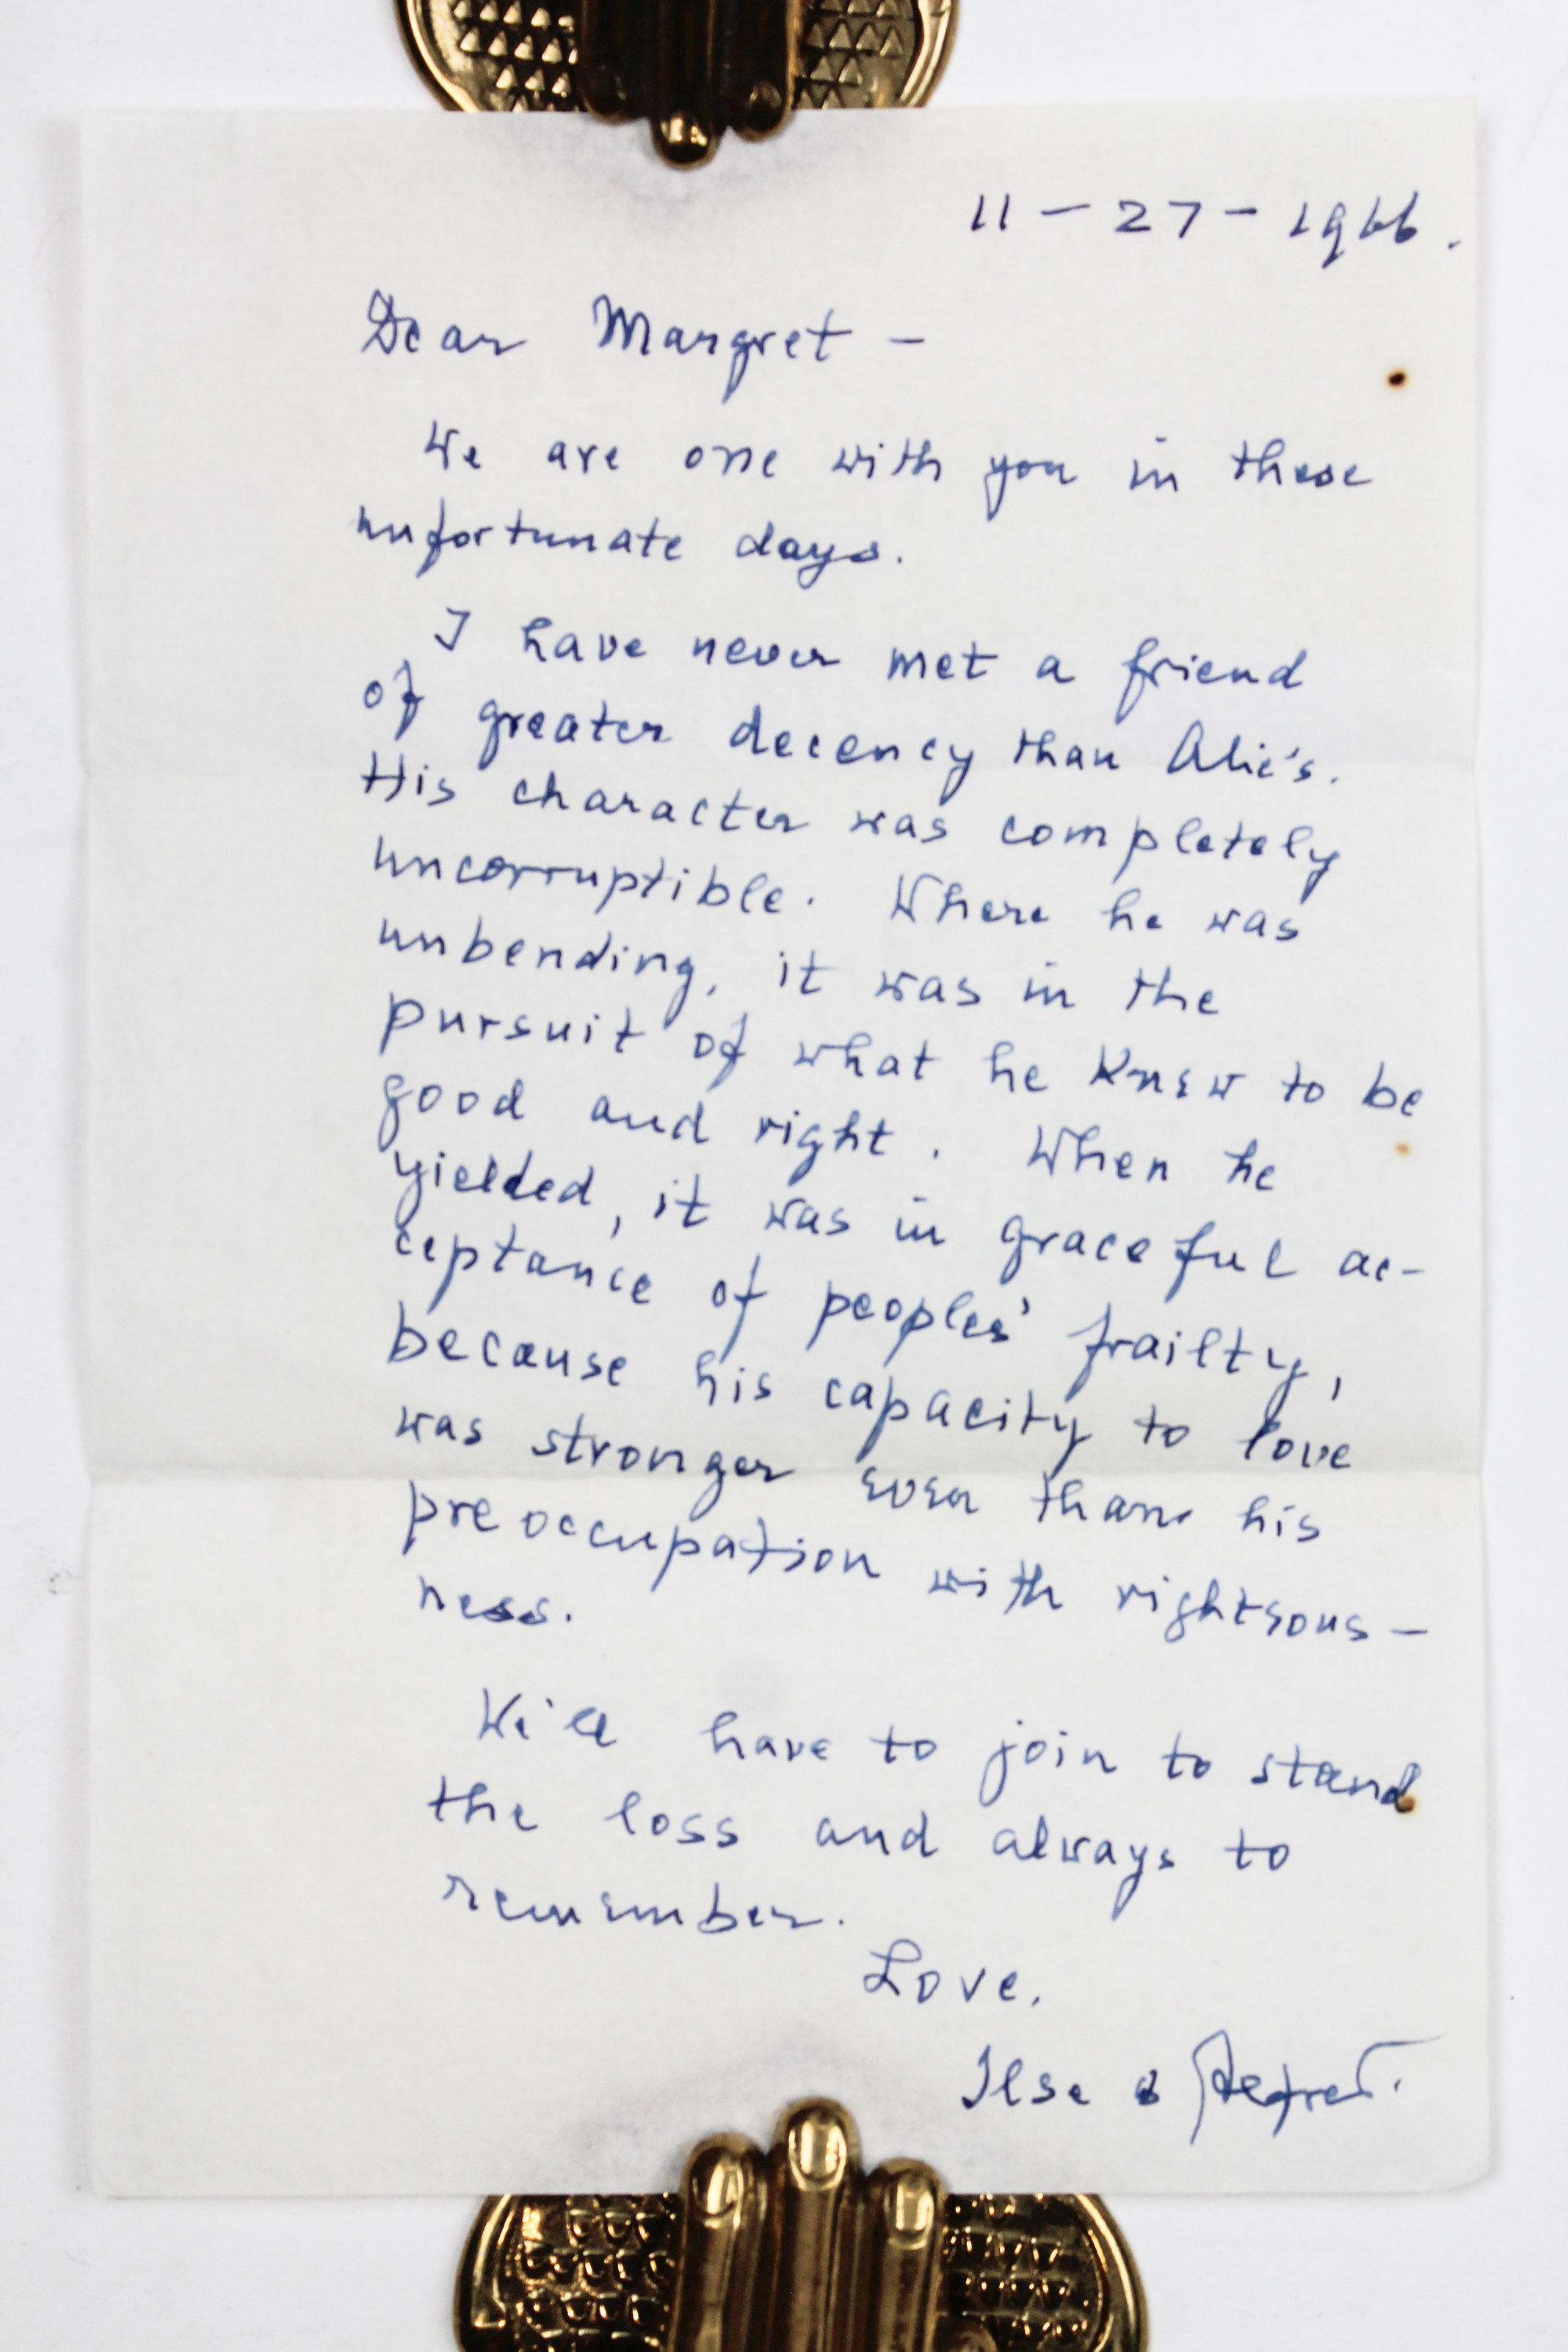 11 - 27 - 1966.
Dear Margret -
We are one with you in these
unfortunate days.
I have never met a friend
of greater decency than
His character was completely
uncorruptible. Where he was
unbending, it was in the
pursuit of what he knew to be
good and right. When he
yielded, it was in graceful ac-
ceptance of peoples' frailty,
because his capacity to love
was stronger even than his
preoccupation with righteous-
ness.
We'll have to join to stand
the loss and always to
remember.
Love.
Ilse &